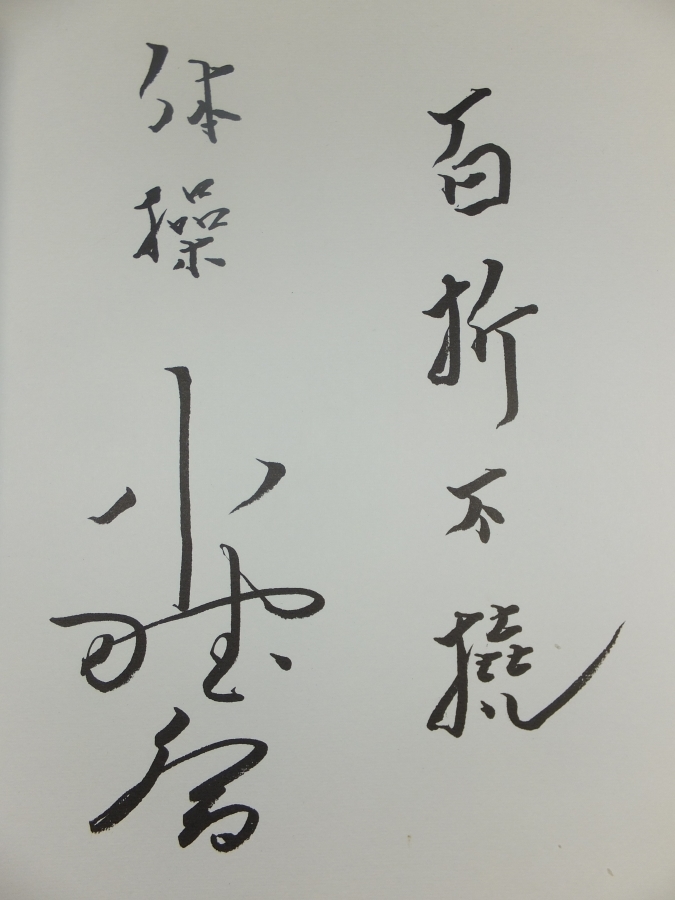 百折不撓
体操 小野喬